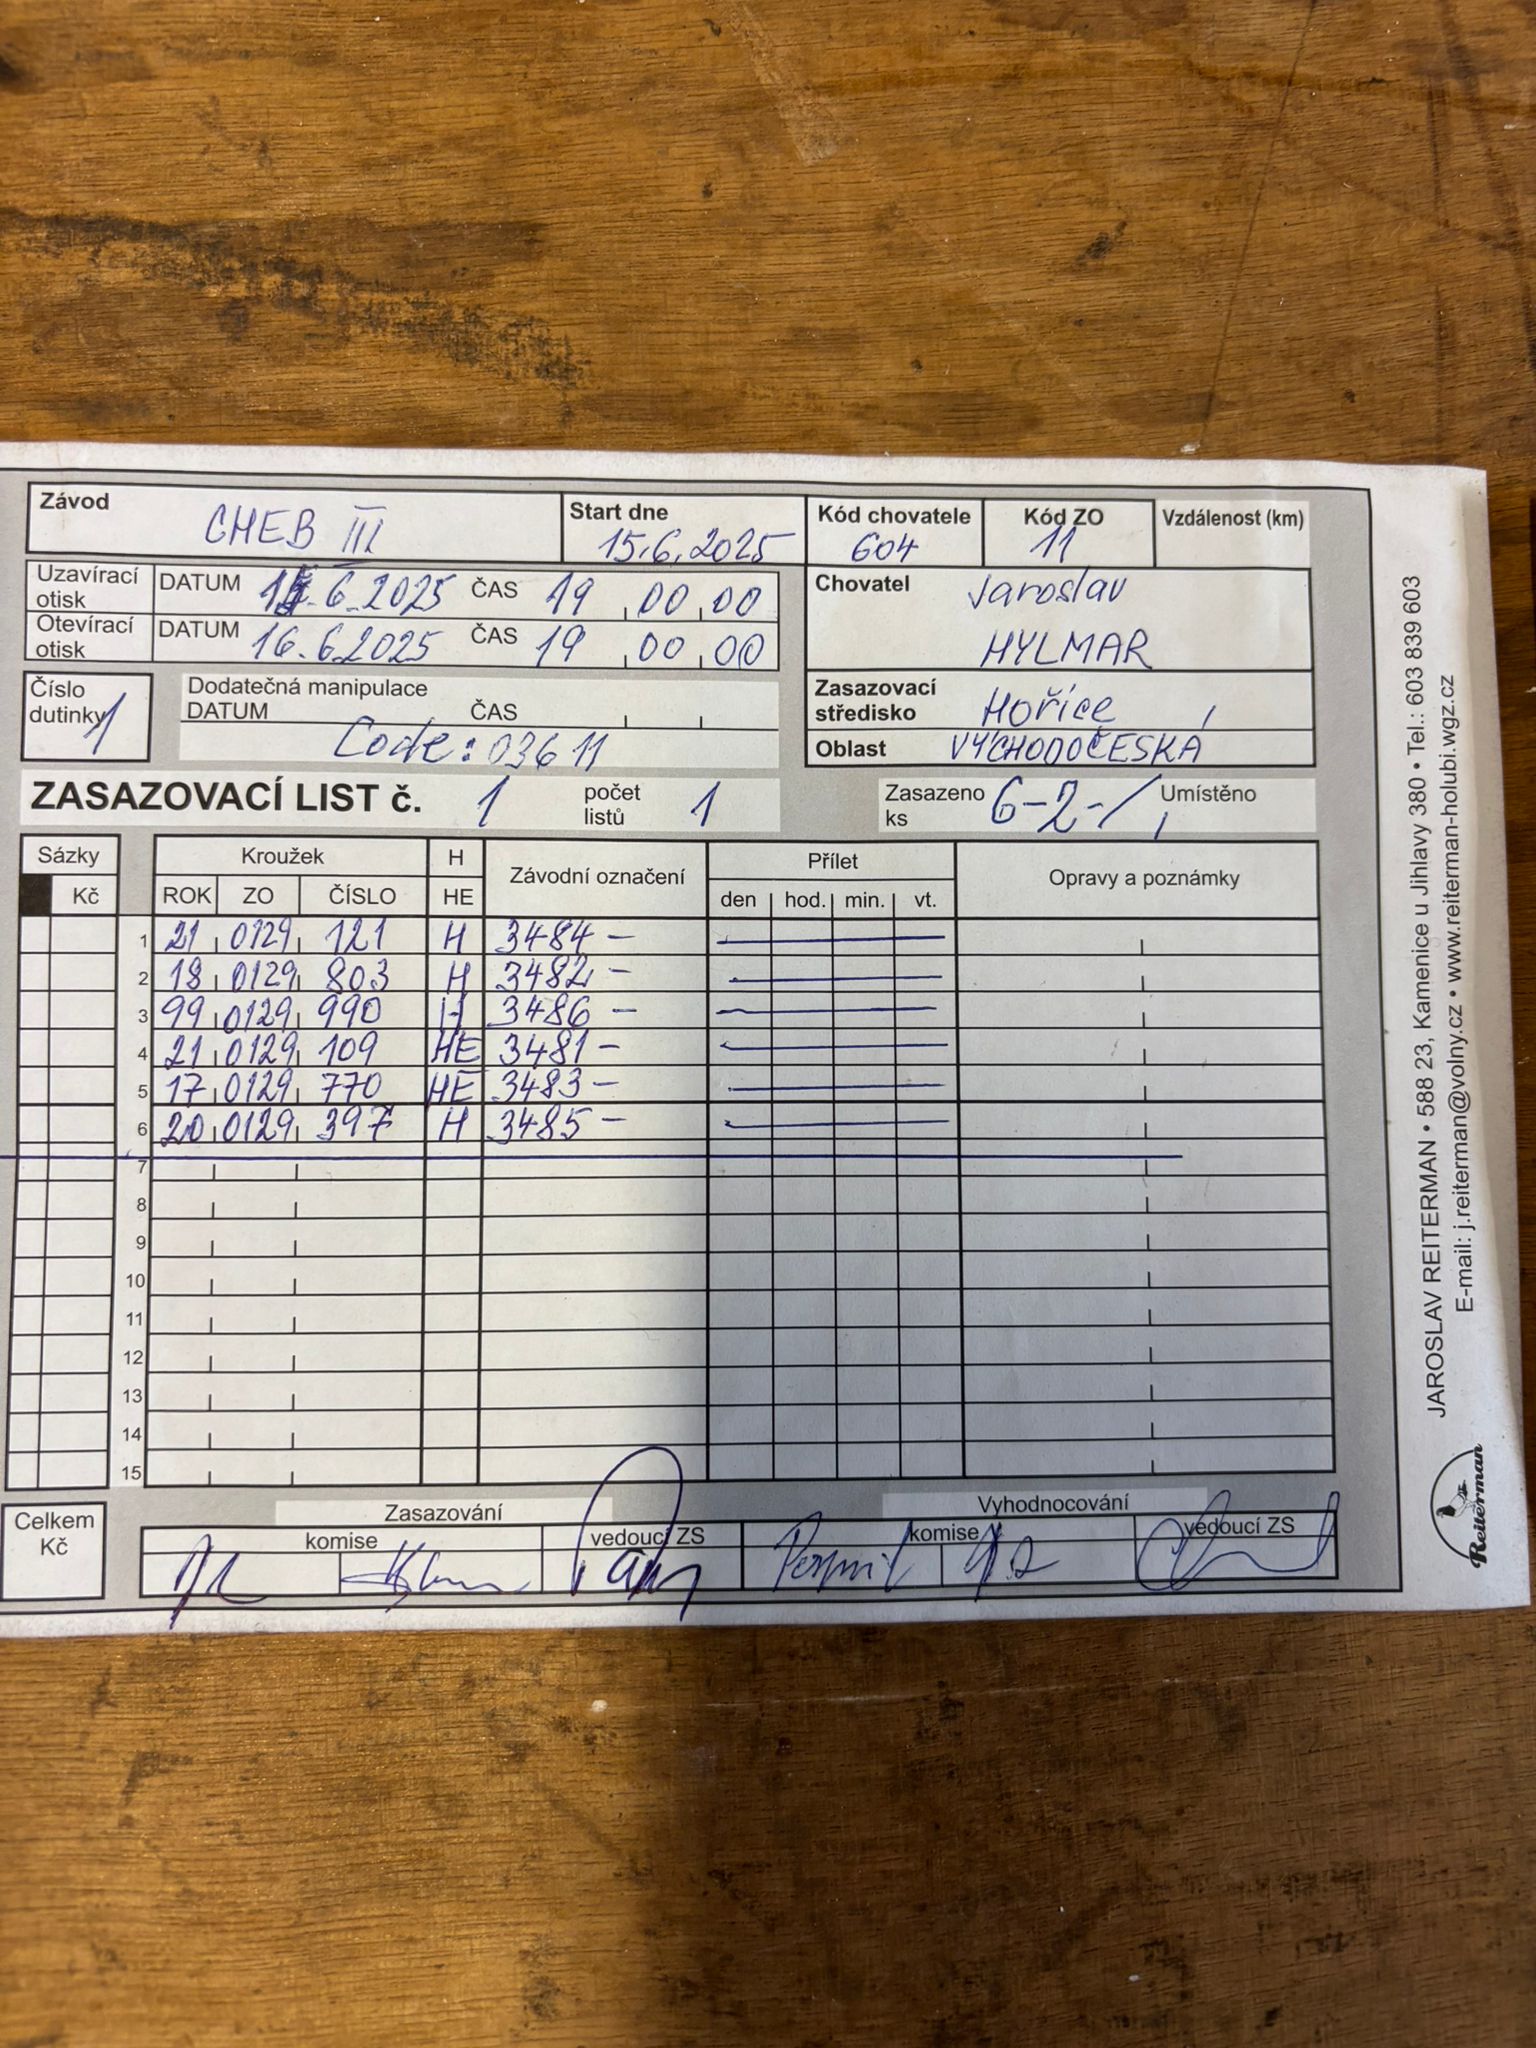 Závod CHEB III Start dne 15.6.2025 Kód chovatele 604 Kód ZO 11 Vzdálenost (km)
Uzavírací otisk DATUM 14.6.2025 ČAS 19 00 00
Otevírací otisk DATUM 16.6.2025 ČAS 19 00 00
Chovatel Jaroslav
HYLMAR
Číslo dutinky 1
Dodatečná manipulace
DATUM ČAS
Code: 03611
Zasazovací středisko Hořice
Oblast VÝCHODOČESKÁ
ZASAZOVACÍ LIST č. 1 počet listů 1 Zasazeno ks 6-2-/ Umístěno
Sázky Kroužek H Závodní označení Přílet Opravy a poznámky
Kč ROK ZO ČÍSLO HE den hod. min. vt.
1 21 0129 121 H 3484 –
2 18 0129 803 H 3482 –
3 99 0129 990 H 3486 –
4 21 0129 109 HE 3481 –
5 17 0129 770 HE 3483 –
6 20 0129 397 H 3485 –
7
8
9
10
11
12
13
14
15
Celkem Kč
Zasazování Vyhodnocování
komise vedoucí ZS komise vedoucí ZS
JAROSLAV REITERMAN • 588 23, Kamenice u Jihlavy 380 • Tel.: 603 839 603
E-mail: j.reiterman@volny.cz • www.reiterman-holubi.wgz.cz
Reiterman